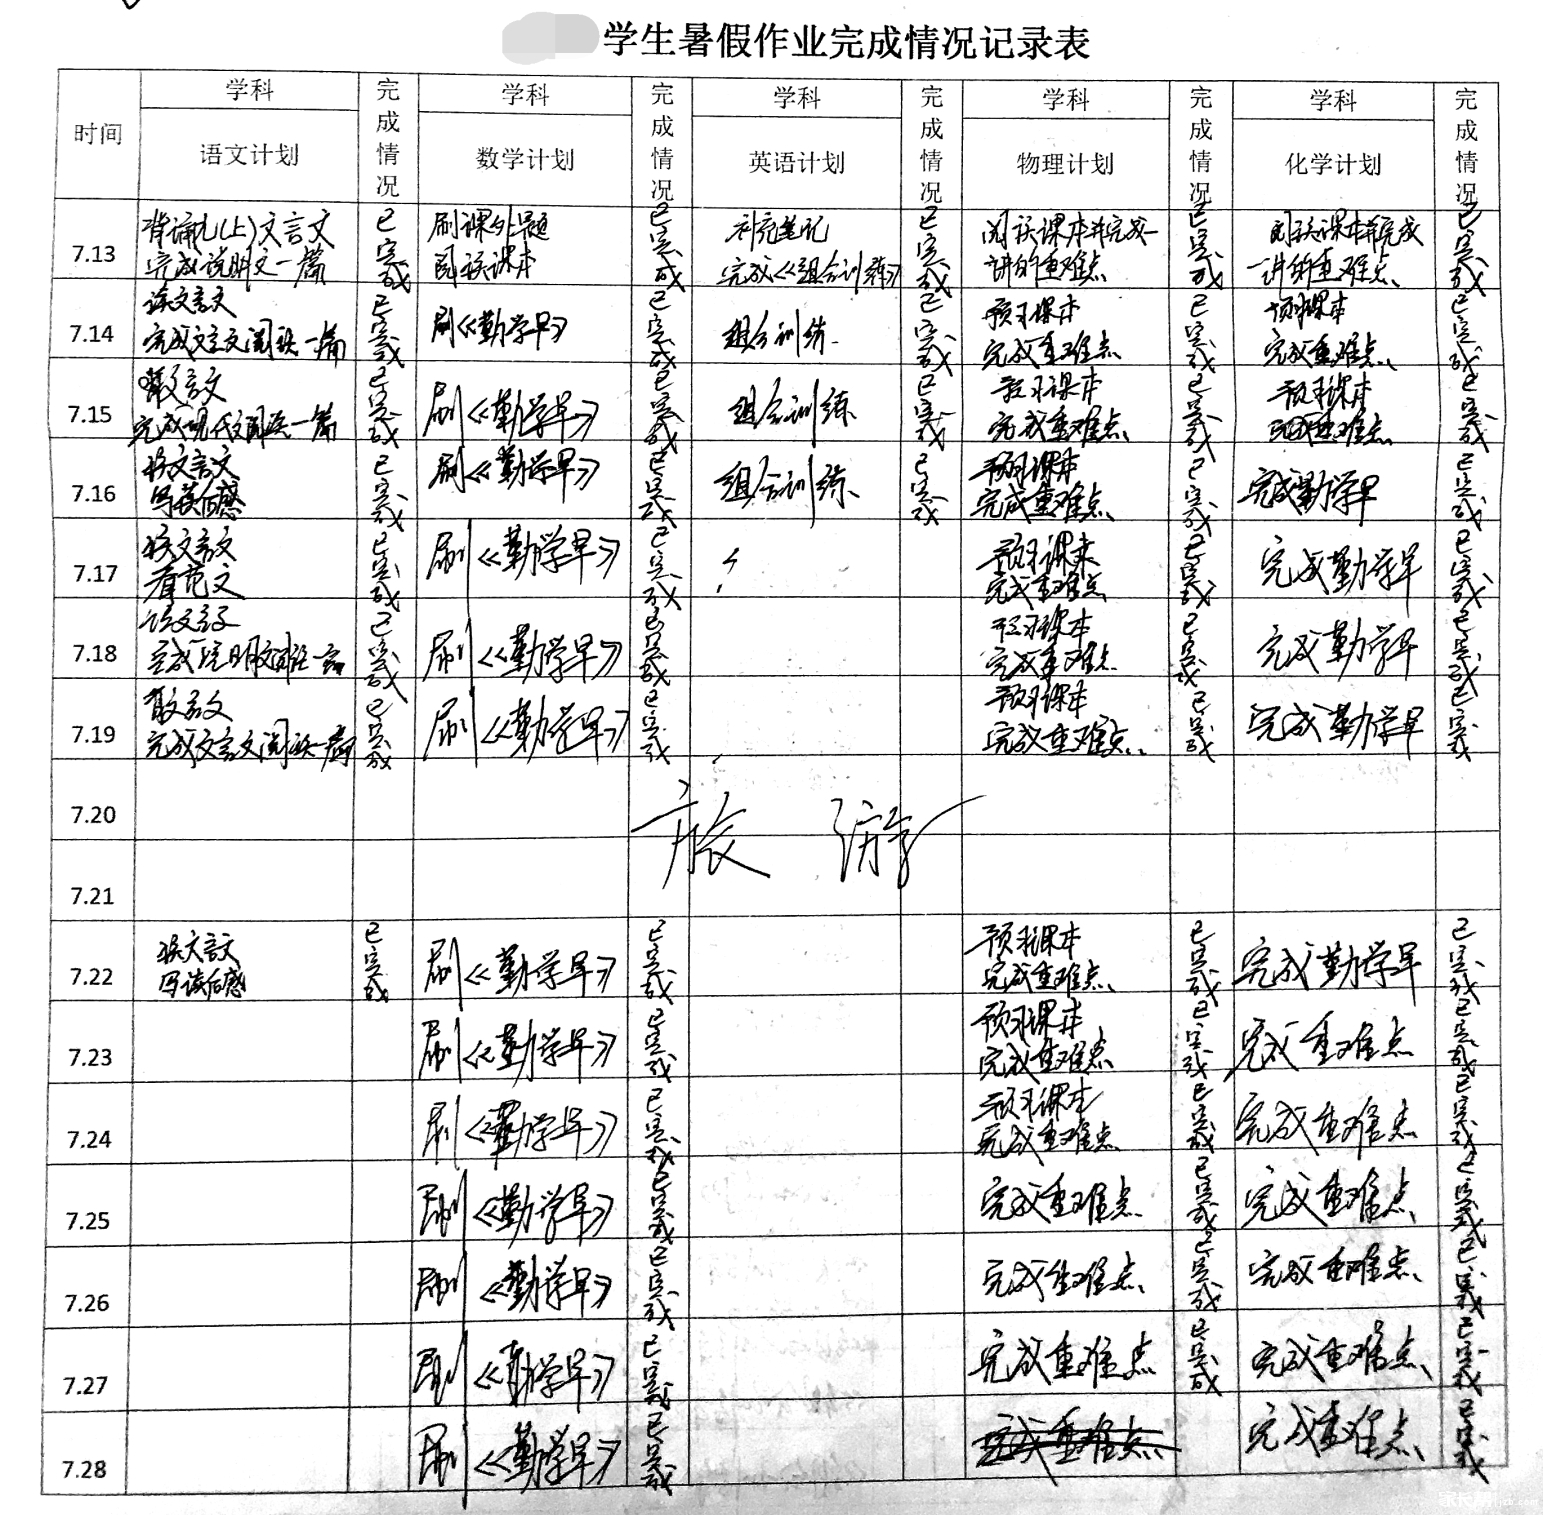 学生暑假作业完成情况记录表
时间 学科 完成情况 学科 完成情况 学科 完成情况 学科 完成情况 学科 完成情况
语文计划 数学计划 英语计划 物理计划 化学计划
7.13 背诵九(上)文言文 已完成 刷课外题 已完成 补充笔记 已完成 阅读课本并完成一 已完成 阅读课本并完成 已完成
完成说明文一篇 阅读课本 完成《组合训练》 讲的重难点 一讲的重难点
7.14 读文言文 已完成 刷《勤学早》 已完成 组合训练 已完成 预习课本 已完成 预习课本 已完成
完成文言文阅读一篇 完成重难点 完成重难点
7.15 文言文 已完成 刷《勤学早》 已完成 组合训练 已完成 预习课本 已完成 预习课本 已完成
完成现代文阅读一篇 完成重难点 完成重难点
7.16 文言文 已完成 刷《勤学早》 已完成 组合训练 已完成 预习课本 已完成 完成勤学早 已完成
写读后感 完成重难点
7.17 文言文 已完成 刷《勤学早》 已完成 预习课本 已完成 完成勤学早 已完成
看范文 完成重难点
7.18 已完成 刷《勤学早》 已完成 预习课本 已完成 完成勤学早 已完成
完成说明文阅读一篇 完成重难点
7.19 文言文 已完成 刷《勤学早》 已完成 预习课本 已完成 完成勤学早 已完成
完成文言文阅读一篇 完成重难点
7.20 旅 游
7.21
7.22 文言文 已完成 刷《勤学早》 已完成 预习课本 已完成 完成勤学早 已完成
写读后感 完成重难点
7.23 刷《勤学早》 已完成 预习课本 已完成 完成重难点 已完成
完成重难点
7.24 刷《勤学早》 已完成 预习课本 已完成 完成重难点 已完成
完成重难点
7.25 刷《勤学早》 已完成 完成重难点 已完成 完成重难点 已完成
7.26 刷《勤学早》 已完成 完成重难点 已完成 完成重难点 已完成
7.27 刷《勤学早》 已完成 完成重难点 已完成 完成重难点 已完成
7.28 刷《勤学早》 已完成 完成重难点 完成重难点 已完成